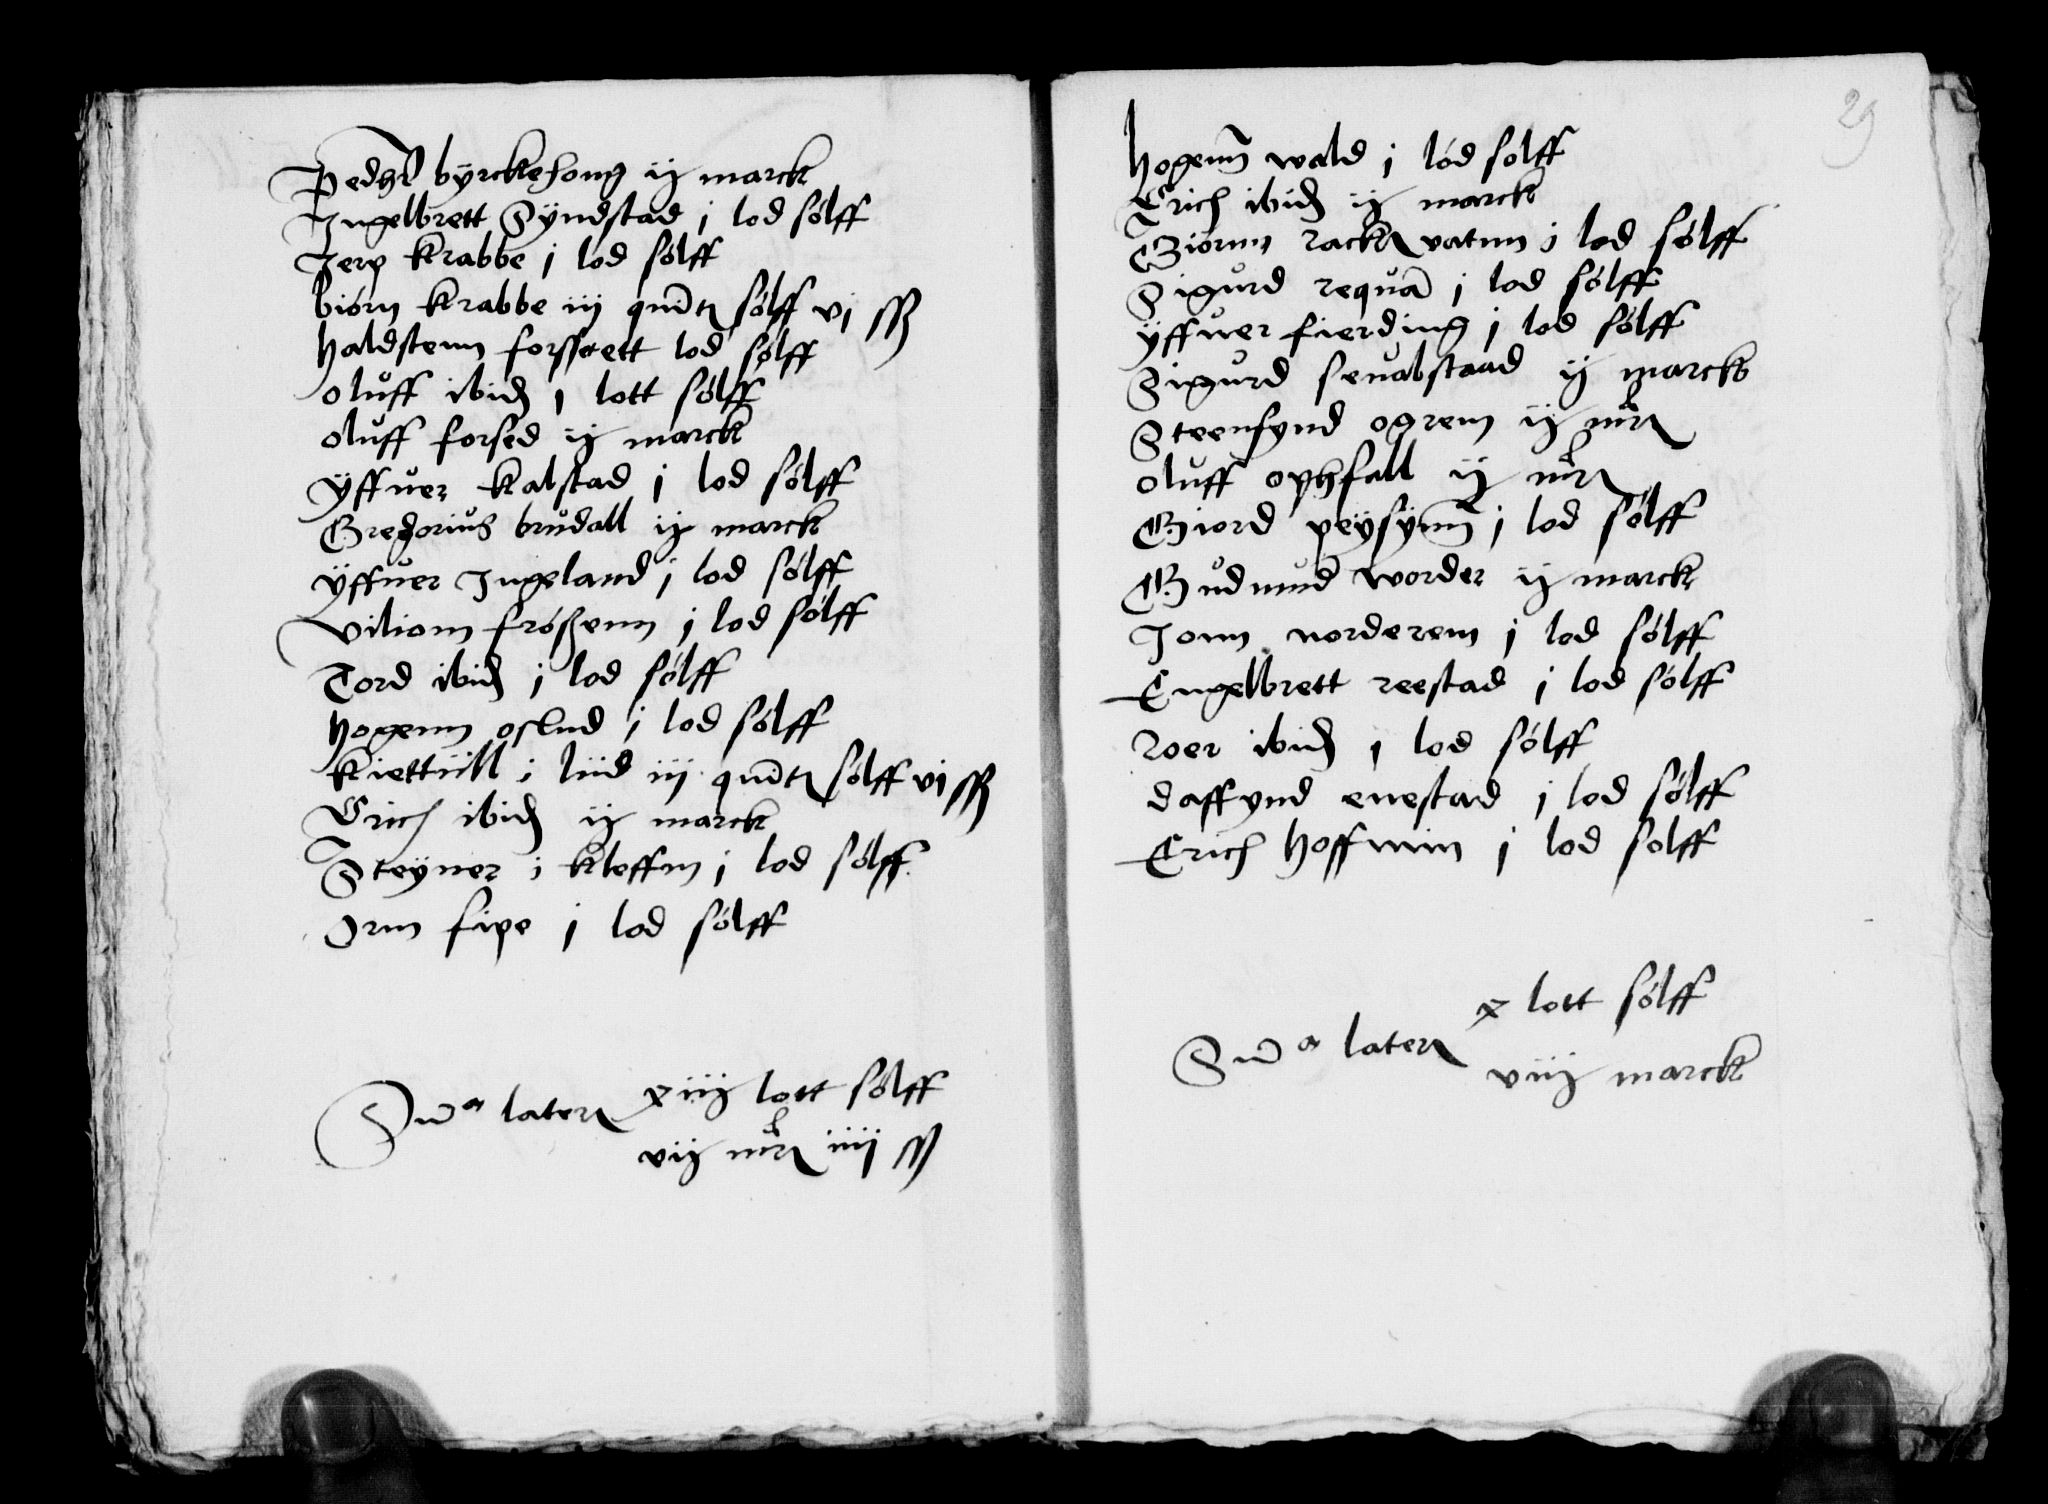 Pedher byrckehong ij marck
Ingelbrett Syndstad j lod sølff
Jerp Krabbe j lod sølff
biørn Krabbe iij quint sølff vj ss
haldstenn forssett lod sølff
oluff ibid j lott sølff
oluff forsed ij marck
yffuer Kalstad j lod sølff
Gregorius brudall ij marck
yffuer Ingeland j lod sølff
viliom frøszenn j lod sølff
Tord ibid j lod sølff
hogenn oslud j lod sølff
kiettiill i liid iij quint sølff vj ss
Erich ibid ij marck
Steyner i kleffm j lod sølff
Orm fipe j lod sølff
Suma lateris xiiij lott sølff
viij mrk iiij ss
29
hogenn wald j lød sølff
Erich ibid ij marck
Giørnn racke vatnn j lod sølff
Sigurd requam j lod sølff
yffuer fierding j lod sølff
Sigurd senalstaad ij marck
Steenfynd ogrem ij mrk
oluff ophfall ij mrk
Giord peysynn j lod sølff
Gudmund worder ij marck
Jonn norderem j lod sølff
Engelbrett reestad j lod sølff
roer ibid j lod sølff
daffynd enestad j lod sølff
Erich hoffwin j lod sølff
Suma lateris x lott sølff
viij marck